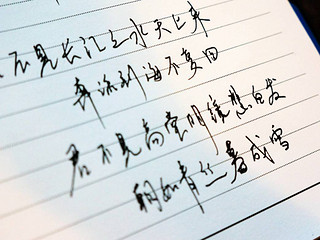 不见长江之水天上来
奔流到海不复回
君不见高堂明镜悲白发
朝如青丝暮成雪